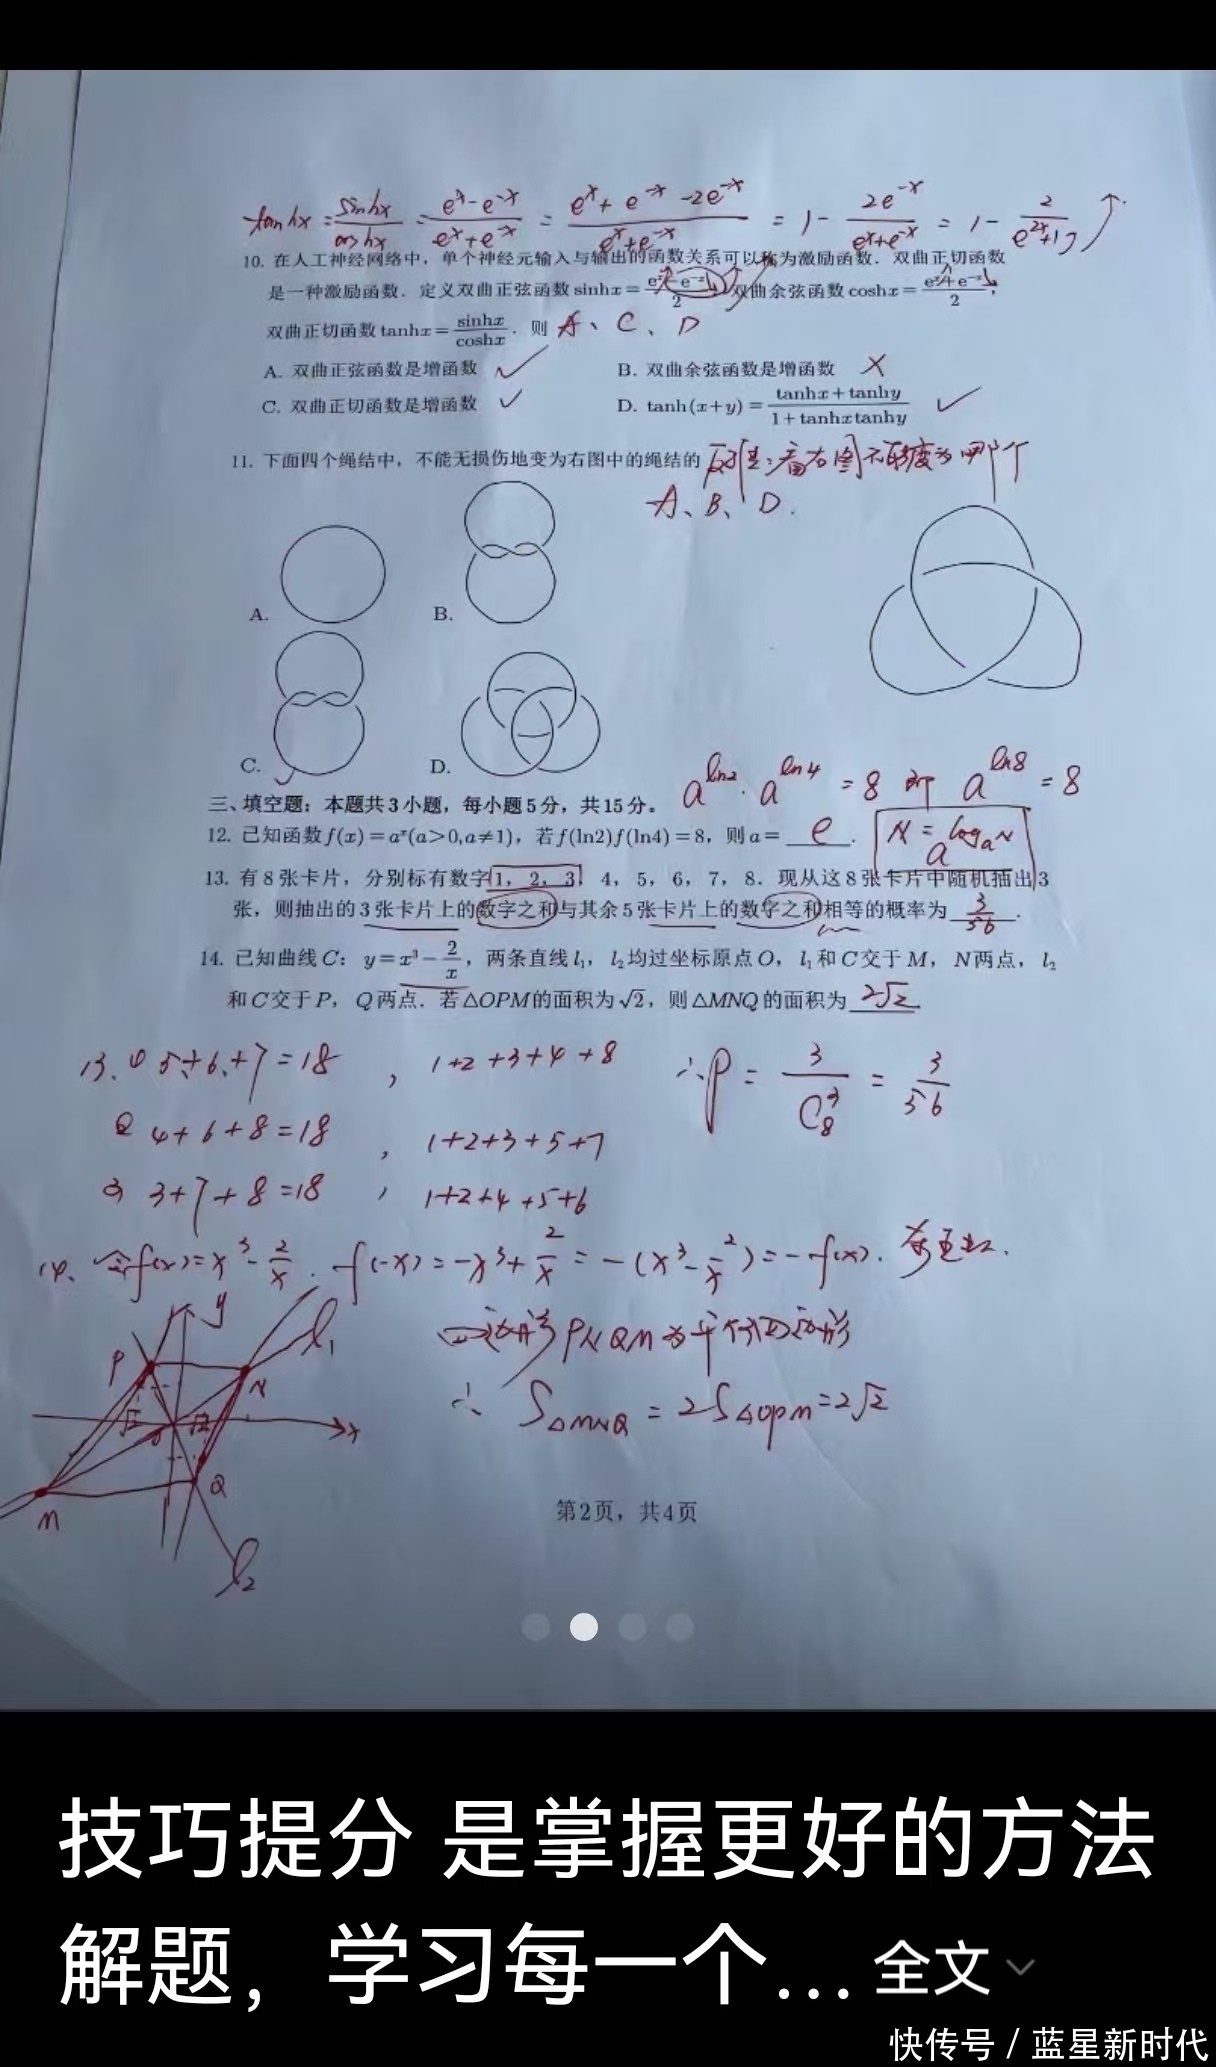 tanhx = sinhx/coshx = (eˣ-e⁻ˣ)/(eˣ+e⁻ˣ) = (eˣ+e⁻ˣ-2e⁻ˣ)/(eˣ+e⁻ˣ) = 1 - 2e⁻ˣ/(eˣ+e⁻ˣ) = 1 - 2/(e²ˣ+1)
10. 在人工神经网络中，单个神经元输入与输出的函数关系可以称为激励函数．双曲正切函数
是一种激励函数．定义双曲正弦函数sinhx=(eˣ-e⁻ˣ)/2，双曲余弦函数coshx=(eˣ+e⁻ˣ)/2，
双曲正切函数tanhx=sinhx/coshx．则 A、C、D
A. 双曲正弦函数是增函数 ✓ B. 双曲余弦函数是增函数 ×
C. 双曲正切函数是增函数 ✓ D. tanh(x+y)=(tanhx+tanhy)/(1+tanhxtanhy) ✓
11. 下面四个绳结中，不能无损伤地变为右图中的绳结的
A、B、D.
A. B.
C. ✓ D.
a^ln2·a^ln4=8 即 a^ln8=8
三、填空题：本题共3小题，每小题5分，共15分。
12. 已知函数f(x)=aˣ(a>0,a≠1)，若f(ln2)f(ln4)=8，则a= e ．
N=a^logₐN
13. 有8张卡片，分别标有数字1，2，3，4，5，6，7，8．现从这8张卡片中随机抽出3
张，则抽出的3张卡片上的数字之和与其余5张卡片上的数字之和相等的概率为 3/56 ．
14. 已知曲线C：y=x³-2/x，两条直线l₁，l₂均过坐标原点O，l₁和C交于M，N两点，l₂
和C交于P，Q两点．若△OPM的面积为√2，则△MNQ的面积为 2√2
13、① 5+6+7=18 , 1+2+3+4+8 ∴P = 3/C₈³ = 3/56
② 4+6+8=18 , 1+2+3+5+7
③ 3+7+8=18 , 1+2+4+5+6
14、令f(x)=x³-2/x . f(-x)=-x³+2/x=-(x³-2/x)=-f(x).
四边形PNQM为平行四边形
∴ S△MNQ = 2S△OPM=2√2
y
l₁
P
N
√2
O
√2
x
M
Q
l₂
第2页，共4页
技巧提分 是掌握更好的方法
解题，学习每一个... 全文
快传号 / 蓝星新时代